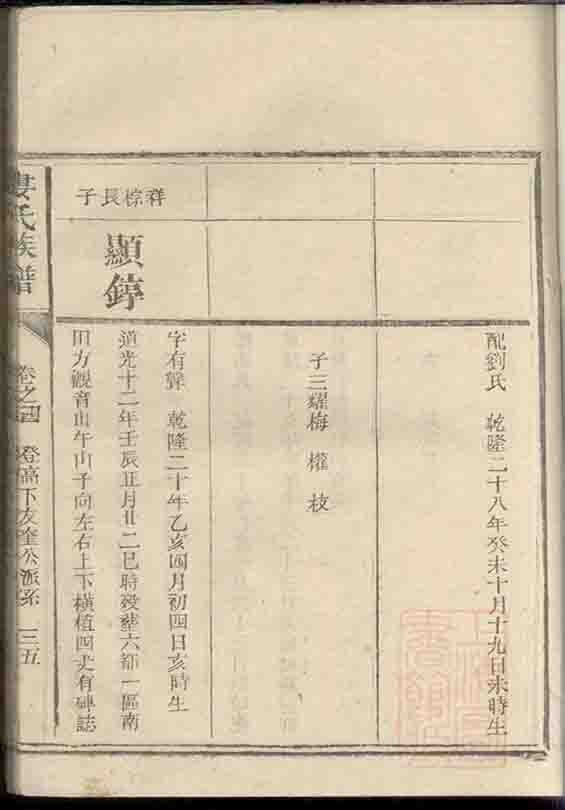 配劉氏 乾隆二十八年癸未十月十九日未時生
子三耀梅 權 枝
祥棕長子
顯錞
字有聲 乾隆二十年乙亥四月初四日亥時生
道光十二年壬辰正月廿二巳時殁塟六都一區南
田方觀音山午山子向左右上下橫植四丈有碑誌
婁氏族譜
卷之四 登高下友奎公派系 一三五